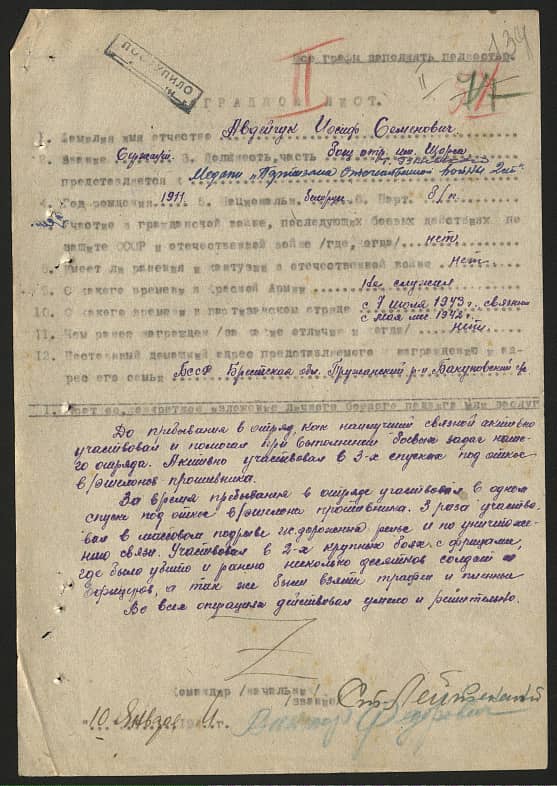 Все графы заполнять полностью.
134
ПОСТУПИЛО
II
II
НАГРАДНОЙ ЛИСТ.
1. Фамилия имя отчество Авдейчук Иосиф Семенович
2. Звание 3. Должность, часть отр. им. Щорса
представляется к Медали "Партизана Отечественной войны 2 ст"
4. Год рождения 1911 5. Национальн. белорус 6. Парт. б/п.
Участие в гражданской войне, последующих боевых действиях по
защите СССР и отечественной войне /где, когда/ нет
8. Имеет ли ранения и контузии в отечественной войне нет
9. С какого времени в Красной Армии Не служил
10. С какого времени в партизанском отряде с 7 июля 1943 г. связным
с мая м-ца 1942 г.
11. Чем ранее награжден /за какие отличия и когда/ нет
12. Постоянный домашний адрес представляемого к награждению и ад-
рес его семьи БССР Брестская обл. Пружанский р-н
1. Краткое, конкретное изложение личного боевого подвига или заслуг
До пребывания в отряд, как наилучший связной активно
участвовал и помогал при выполнении боевых задач наше-
го отряда. Активно участвовал в 3-х спусках под откос
в/эшелонов противника.
За время пребывания в отряде участвовал в одном
спуске под откос в/эшелона противника. 3 раза участво-
вал в массовом подрыве жс.дорожных рельс и по уничтоже-
нию связи. Участвовал в 2-х крупных боях с фрицами,
где было убито и ранено несколько десятков солдат и
офицеров, а так же были взяты трофеи и пленные
Во всех операциях действовал умело и решительно.
Командир /начальник/
звание Ст. Лейт
10 Января